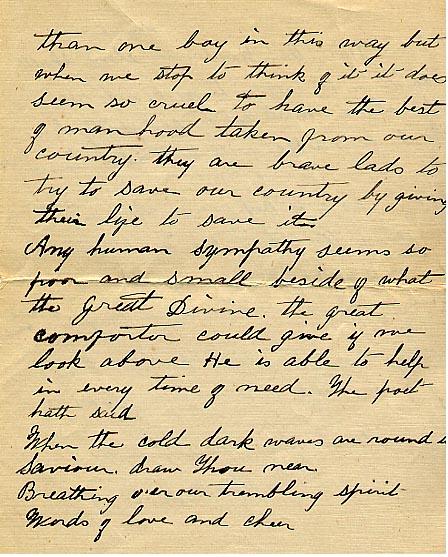 than one boy in this way but
when we stop to think of it it does
seem so cruel to have the best
of man hood taken from our
country. they are brave lads to
try to save our country by giving
their life to save it
Any human sympathy seems so
poor and small beside of what
the Great Divine. the great
comfortor could give if we
look above He is able to help
in every time of need. The poet
hath said
When the cold dark waves are round u
Saviour. draw Thou near.
Breathing o'er our trembling spirit
Words of love and cheer